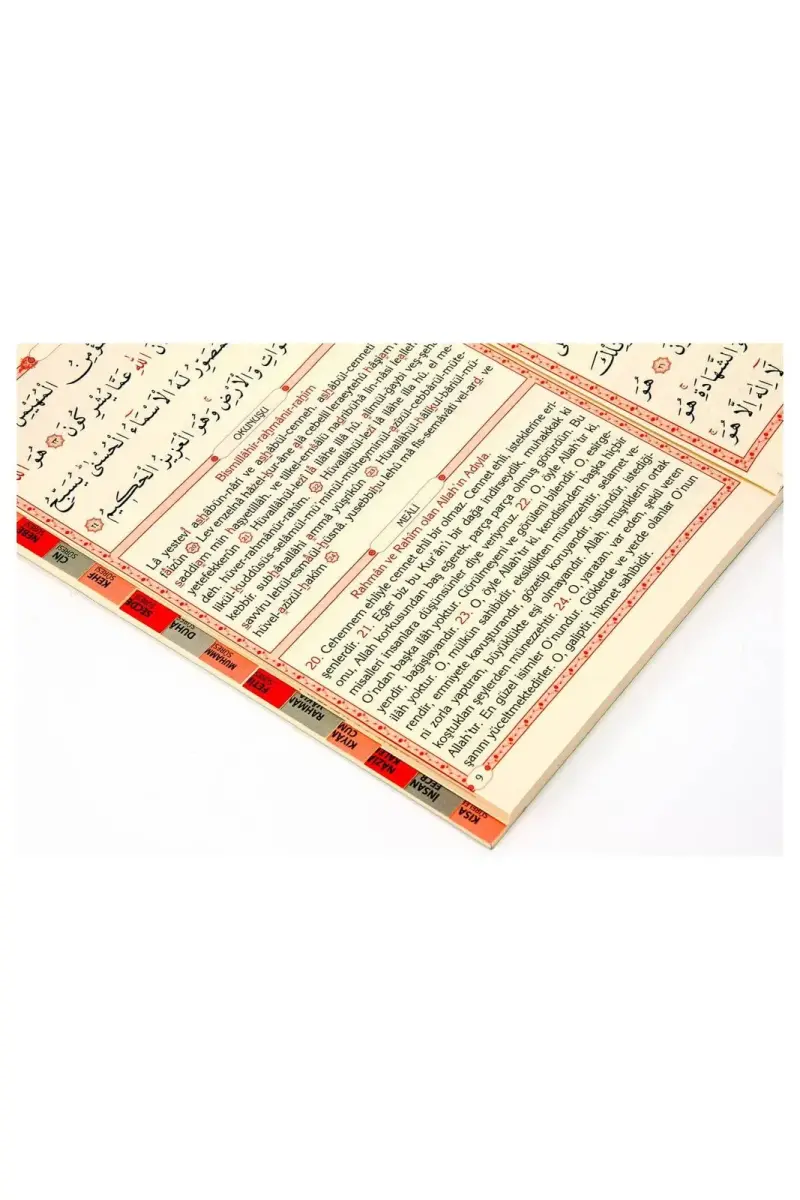 الْمُهَيْمِنُ
اللّٰهِ عَمَّا يُشْرِكُونَ
هُوَ
لَهُ الْاَسْمَٓاءُ الْحُسْنٰى يُسَبِّحُ
وَالْاَرْضِ وَهُوَ الْعَزِيزُ الْحَكِيمُ
OKUNUŞU
Bismillâhir-rahmânir-rahîm
Lâ yestevî ashâbün-nâri ve ashâbül-cenneh, ashâbül-cenneti
fâizûn 20 Lev enzelnâ hâzel-kur-âne alâ cebelil leraeytehû hâşiam
saddiam min hasyetillâh, ve tilkel-emsâlü nadribühâ lin-nâsi leallehüm
yetefekkerûn 21 Hüvallâhül-lezî lâ ilâhe illâ hû, âlimül-ğaybi veş-şehâ
deh, hüver-rahmânür-rahîm. 22 Hüvallâhül-lezî lâ ilâhe illa hû, el me-
likül-kuddûsüs-selâmül-mü'minül-müheyminül-azîzül-cebbârül-müte-
kebbir, subhânallâhi ammâ yüşrikûn 23 Hüvallâhül-hâlikul-bâriül-mü-
savviru lehül-esmâül-hüsnâ, yusebbihu lehû mâ fis-semâvâti vel-ard, ve
hüvel-azîzül-hakîm 24
MEALİ
Rahmân ve Rahîm olan Allah'ın Adıyla.
20. Cehennem ehliyle cennet ehli bir olmaz. Cennet ehli, isteklerine eri-
şenlerdir. 21. Eğer biz bu Kur'ân'ı bir dağa indirseydik, muhakkak ki
onu, Allah korkusundan baş eğerek, parça parça olmuş görürdün. Bu
misalleri insanlara düşünsünler diye veriyoruz. 22. O, öyle Allah'tır ki,
O'ndan başka ilâh yoktur. Görülmeyeni ve görüleni bilendir. O, esirge-
yendir, bağışlayandır. 23. O, öyle Allah'tır ki, kendisinden başka hiçbir
ilâh yoktur. O, mülkün sahibidir, eksiklikten münezzehtir, selamet ve-
rendir, emniyete kavuşturandır, gözetip koruyandır, üstündür, istediği-
ni zorla yaptıran, büyüklükte eşi olmayandır. Allah, müşriklerin ortak
koştukları şeylerden münezzehtir. 24. O, yaratan, var eden, şekil veren
Allah'tır. En güzel isimler O'nundur. Göklerde ve yerde olanlar O'nun
şanını yüceltmektedirler. O, galiptir, hikmet sahibidir.
9
هُوَ
وَالشَّهَادَةِ هُوَ
لَٓا اِلٰهَ اِلَّا هُوَ
NEBE
CİN
SÛRESİ
KEHF
SÛRESİ
SECDE
DUHA
MUHAMM
SÛRESİ
FETİ
RAHMAN
KIYAM
CUM
NAZİA
İNSAN
FECR
KISA